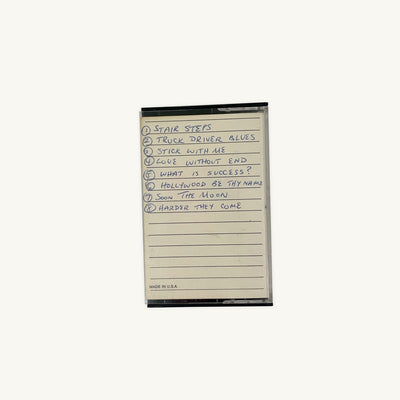 ① STAIR STEPS
② TRUCK DRIVER BLUES
③ STICK WITH ME
④ LOVE WITHOUT END
⑤ WHAT IS SUCCESS?
⑥ HOLLYWOOD BE THY NAME
⑦ SOON THE MOON
⑧ HARDER THEY COME
MADE IN U.S.A.